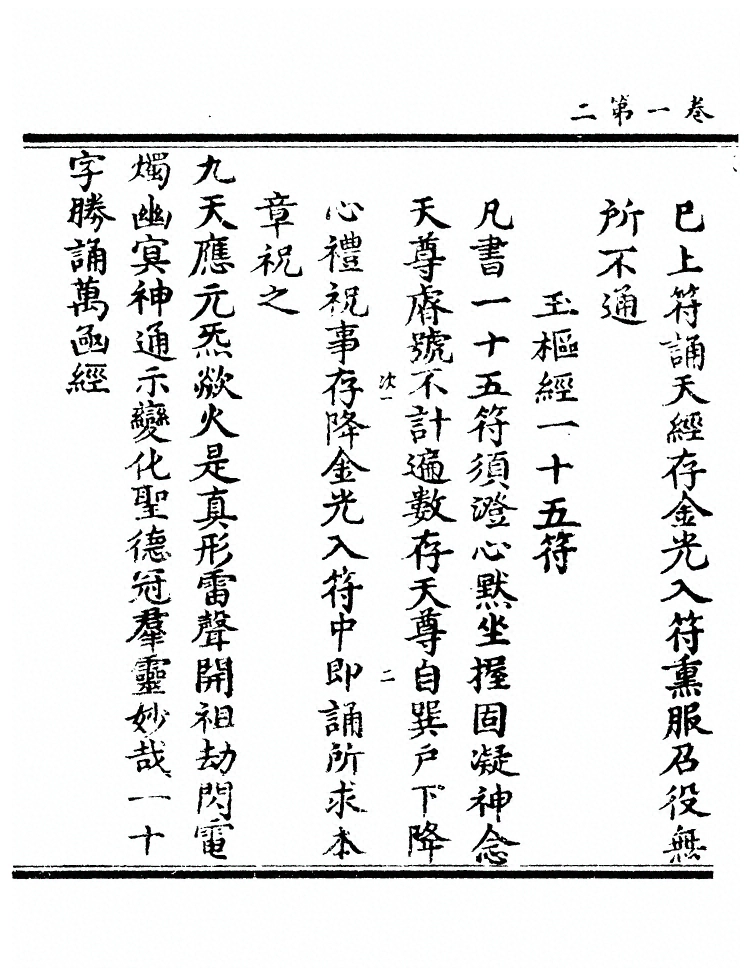 卷一第二
已上符誦天經存金光入符熏服召役無
所不通
玉樞經一十五符
凡書一十五符須澄心默坐握固凝神念
天尊睿號不計遍數存天尊自巽戶下降
次一
二
心禮祝事存降金光入符中即誦所求本
章祝之
九天應元炁燄火是真形雷聲開祖劫閃電
燭幽冥神通示變化聖德冠羣靈妙哉一十
字勝誦萬函經